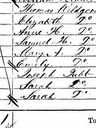 Thomas Widger
Elizabeth Do
Anne H. Do
Samuel H. Do
Mary A. Do
Emily Do
Joseph Babb
Sarah Do
Sarah Do